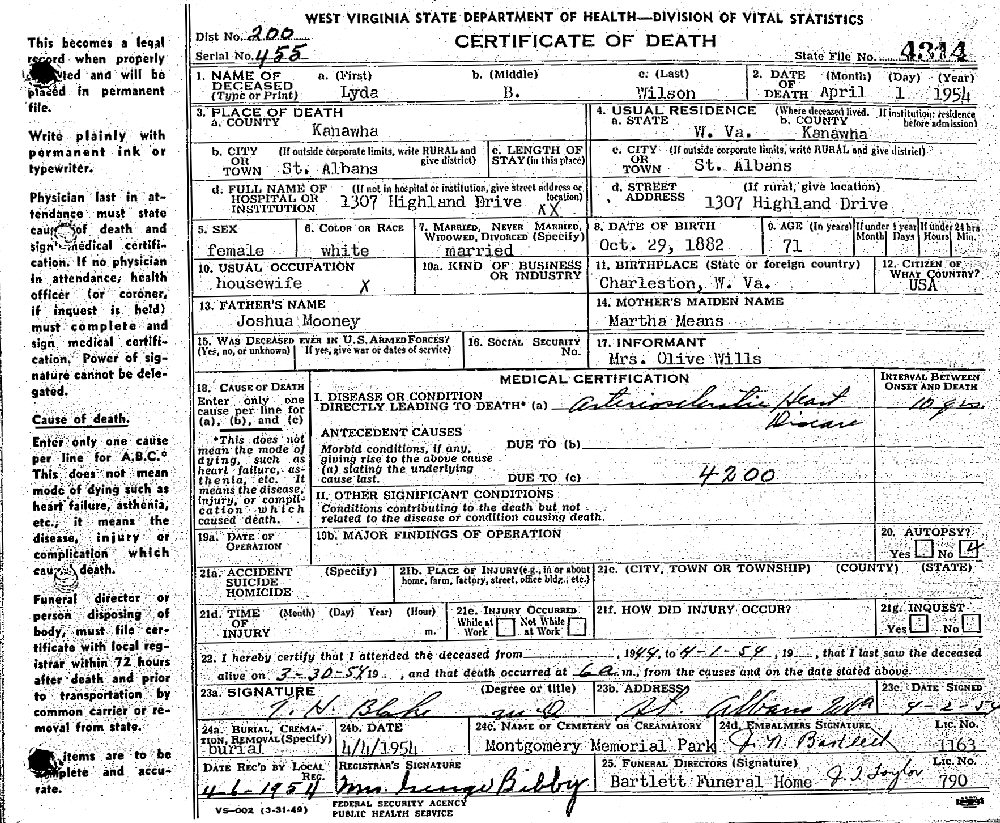 WEST VIRGINIA STATE DEPARTMENT OF HEALTH—DIVISION OF VITAL STATISTICS
Dist No. 200
CERTIFICATE OF DEATH
Serial No. 455
State File No. 4314
This becomes a legal
record when properly
and will be
placed in permanent
file.
Write plainly with
permanent ink or
typewriter.
Physician last in at-
tendance must state
cause of death and
sign medical certifi-
cation. If no physician
in attendance, health
officer (or coroner,
if inquest is held)
must complete and
sign medical certifi-
cation. Power of sig-
nature cannot be dele-
gated.
Cause of death.
Enter only one cause
per line for A.B.C.*
This does not mean
mode of dying such as
heart failure, asthenia,
etc., it means the
disease, injury or
complication which
death.
Funeral director or
person disposing of
body, must file cer-
tificate with local reg-
istrar within 72 hours
after death and prior
to transportation by
common carrier or re-
moval from state.
items are to be
complete and accu-
rate.
1. NAME OF DECEASED (Type or Print) a. (First) b. (Middle) c. (Last)
Lyda B. Wilson
2. DATE OF DEATH (Month) (Day) (Year)
April 1 1954
3. PLACE OF DEATH
a. COUNTY
Kanawha
4. USUAL RESIDENCE (Where deceased lived. If institution: residence before admission)
a. STATE b. COUNTY
W. Va. Kanawha
b. CITY OR TOWN (If outside corporate limits, write RURAL and give district)
St. Albans
c. LENGTH OF STAY (in this place)
c. CITY OR TOWN (If outside corporate limits, write RURAL and give district)
St. Albans
d. FULL NAME OF HOSPITAL OR INSTITUTION (If not in hospital or institution, give street address or location)
1307 Highland Drive XX
d. STREET ADDRESS (If rural, give location)
1307 Highland Drive
5. SEX
female
6. COLOR OR RACE
white
7. MARRIED, NEVER MARRIED, WIDOWED, DIVORCED (Specify)
married
8. DATE OF BIRTH
Oct. 29, 1882
9. AGE (In years)
71
If under 1 year Month Days
If under 24 hrs Hours Min.
10. USUAL OCCUPATION
housewife X
10a. KIND OF BUSINESS OR INDUSTRY
11. BIRTHPLACE (State or foreign country)
Charleston, W. Va.
12. CITIZEN OF WHAT COUNTRY?
USA
13. FATHER'S NAME
Joshua Mooney
14. MOTHER'S MAIDEN NAME
Martha Means
15. WAS DECEASED EVER IN U.S. ARMED FORCES?
(Yes, no, or unknown) If yes, give war or dates of service)
16. SOCIAL SECURITY No.
17. INFORMANT
Mrs. Olive Wills
18. CAUSE OF DEATH
Enter only one
cause per line for
(a), (b), and (c)
*This does not
mean the mode of
dying, such as
heart failure, as-
thenia, etc. It
means the disease,
injury, or compli-
cation which
caused death.
MEDICAL CERTIFICATION
INTERVAL BETWEEN ONSET AND DEATH
I. DISEASE OR CONDITION
DIRECTLY LEADING TO DEATH* (a) Arteriosclerotic Heart Disease
10 yrs.
ANTECEDENT CAUSES
Morbid conditions, if any,
giving rise to the above cause
(a) stating the underlying
cause last.
DUE TO (b)
DUE TO (c) 4200
II. OTHER SIGNIFICANT CONDITIONS
Conditions contributing to the death but not
related to the disease or condition causing death.
19a. DATE OF OPERATION
19b. MAJOR FINDINGS OF OPERATION
20. AUTOPSY?
Yes No 4
21a. ACCIDENT SUICIDE HOMICIDE (Specify)
21b. PLACE OF INJURY (e.g., in or about home, farm, factory, street, office bldg., etc.)
21c. (CITY, TOWN OR TOWNSHIP) (COUNTY) (STATE)
21d. TIME OF INJURY (Month) (Day) Year) (Hour) m.
21e. INJURY OCCURRED
While at Work Not While at Work
21f. HOW DID INJURY OCCUR?
21g. INQUEST
Yes No
22. I hereby certify that I attended the deceased from , 1944, to 4-1-54, 19 , that I last saw the deceased
alive on 3-30-54 19 , and that death occurred at 6 a m., from the causes and on the date stated above.
23a. SIGNATURE (Degree or title)
T. H. Blake M.D.
23b. ADDRESS
St Albans W Va
23c. DATE SIGNED
4-2-54
24a. BURIAL, CREMA-TION, REMOVAL (Specify)
burial
24b. DATE
4/4/1954
24c. NAME OF CEMETERY OR CREAMATORY
Montgomery Memorial Park
24d. EMBALMERS SIGNATURE
J. N. Bartlett
LIC. NO.
1163
DATE REC'D BY LOCAL REG.
4-6-1954
REGISTRAR'S SIGNATURE
Mrs. George Bibby
25. FUNERAL DIRECTORS (Signature)
Bartlett Funeral Home J. I. Taylor
LIC. No.
790
VS-002 (3-31-49)
FEDERAL SECURITY AGENCY
PUBLIC HEALTH SERVICE